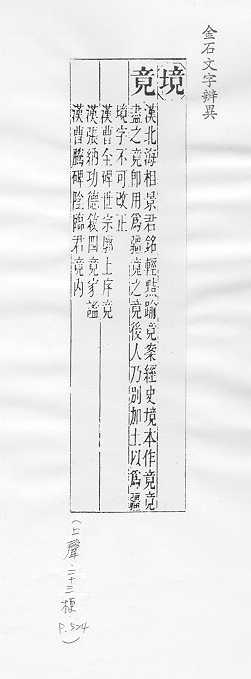 金石文字辨異
境
竟
漢北海相景君銘輕黠踰竟案經史境本作竟竟
盡之竟即用為疆竟之竟後人乃別加土以為疆
境字不可改正
漢曹全碑世宗廓土序竟
漢張納功德敘四竟家謐
漢曹騰碑陰臨君竟內
(上聲.二十三梗
P.524)